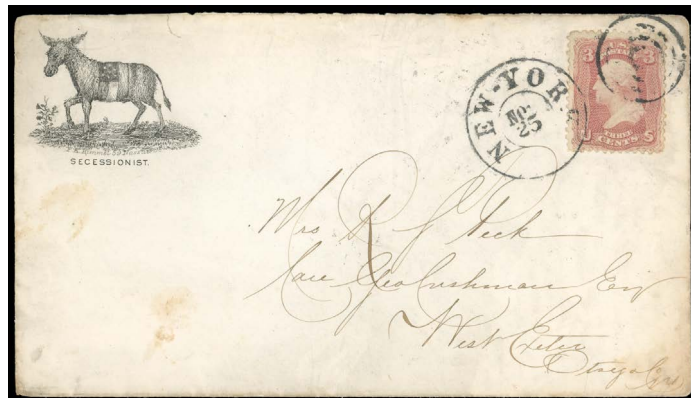 SECESSIONIST.
NEW-YORK
NO.
25
3 3
U THREE CENTS S
Mrs R S Peck
Care Geo Cushman Esq
West Exeter
Otsego Co